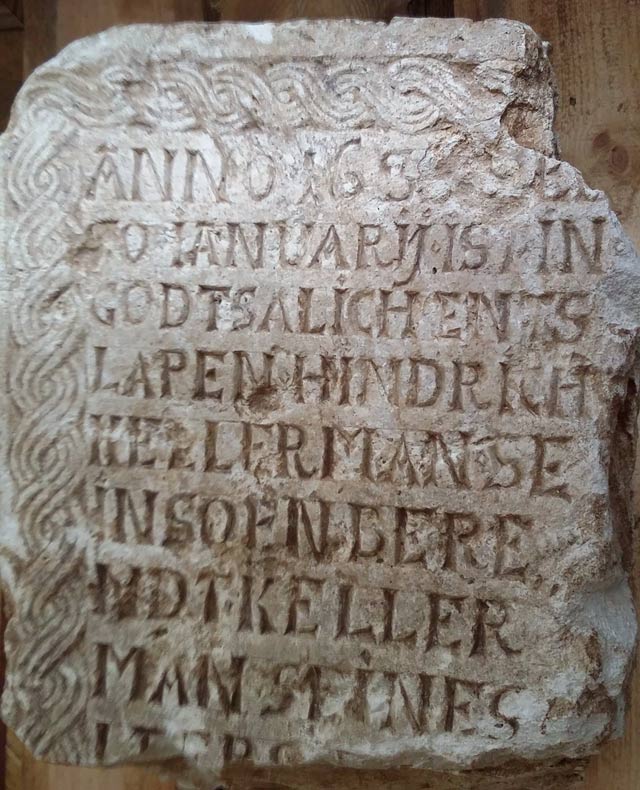 ANNO 163
20 IANUARŸ · IST IN
GODT SALICH ENTS
LAPEN HINDRICH
KELLERMAN · SE
IN SOEN BERE
NDT · KELLER
MAN SEINES